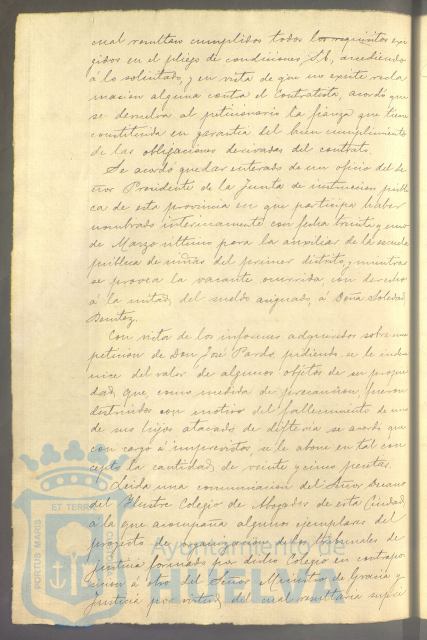 cual resultan cumplidos todos los requisitos exi-
gidos en el pliego de condiciones, S.E., accediendo
á lo solicitado, y en vista de que no existe recla-
macion alguna contra el Contratista, acordó que
se devuelva al peticionario la fianza que tiene
constituida en garantia del buen cumplimiento
de las obligaciones derivadas del contrato.
Se acordó quedar enterado de un oficio del Se-
ñor Presidente de la Junta de instruccion públi-
ca de esta provincia en que participa haber
nombrado interinamente con fecha treinta y uno
de Marzo último para la auxiliar de la escuela
pública de niñas del primer distrito, y mientras
se provea la vacante ocurrida, con derecho
á la mitad del sueldo asignado, á Doña Soledad
Benitez.
Con vista de los informes adquiridos sobre una
peticion de Don José Pardo, pidiendo se le indem-
nice del valor de algunos objetos de su propie-
dad, que, como medida de precaucion, fueron
destruidos con motivo del fallecimiento de uno
de sus hijos atacado de difteria se acordó que
con cargo á imprevistos se le abone en tal con-
cepto la cantidad de veinte y cinco pesetas.
Leida una comunicacion del Señor Decano
del Ilustre Colegio de Abogados de esta Ciudad,
á la que acompaña algunos ejemplares del
proyecto de organizacion de los tribunales de
justicia formado por dicho Colegio en contrapo-
sicion á otro del Señor Ministro de Gracia y
Justicia por virtud del cual resultaria supri-
PORTUS MARIS ET TERRAE CUSTODIA
Ayuntamiento de
HUELVA